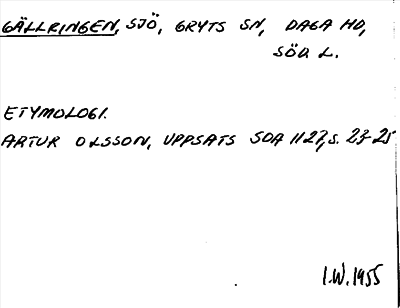 GÄLLRINGEN, SJÖ, GRYTS SN, DAGA HD,
SÖD. L.
ETYMOLOGI.
ARTUR OLSSON, UPPSATS SOA 1127, S. 23-25
I.W. 1955